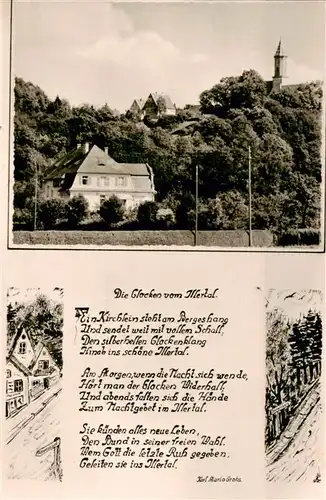 Die Glocken vom Illertal.
Ein Kirchlein steht am Bergeshang
Und sendet weit mit vollem Schall,
Den silberhellen Glockenklang
Hinab ins schöne Illertal.
Am Morgen, wenn die Nacht sich wende,
Hört man der Glocken Widerhall,
Und abends falten sich die Hände
Zum Nachtgebet im Illertal.
Sie künden alles neue Leben,
Den Bund in seiner freien Wahl.
Wem Gott die letzte Ruh gegeben,
Geleiten sie ins Illertal.
Karl Maria